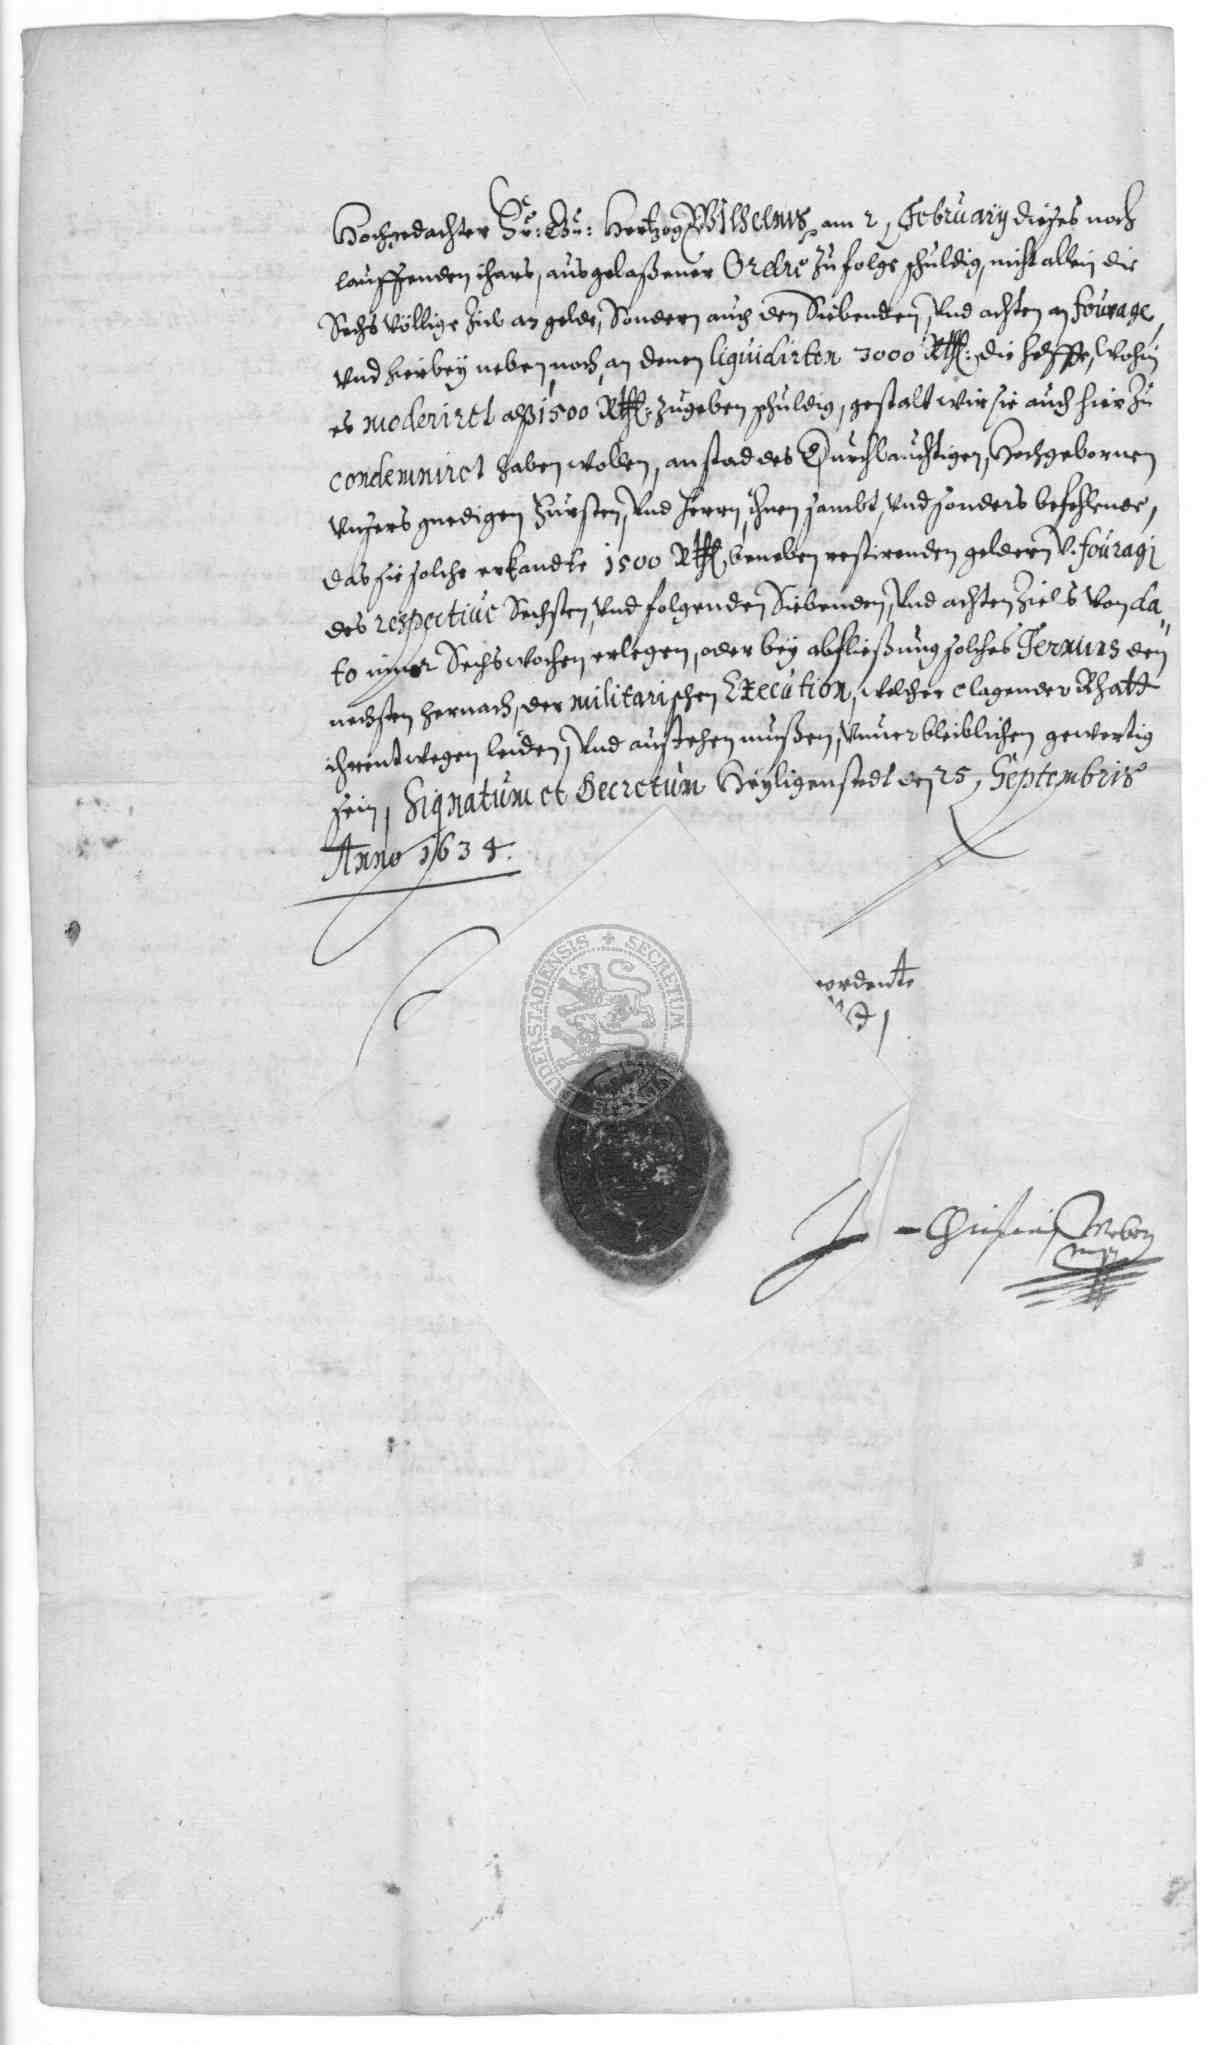 Hochgedachter Fr: Gn: Hertzog Wilhelms, am 2, February dieses noch
lauffenden ihars, ausgelaßener Ordre zufolge schuldig, nicht allein die
Sechs völlige Ziel an gelde, Sondern auch den Siebenden, und achten an fourage,
und hierbey neben, noch, an denen liquidirten 3000 Rthl: die helffte, wohin
es moderiret alß 1500 Rthl: zugeben schuldig, gestalt wir sie auch hier zu
condemniret haben wollen, anstad des Durchlauchtigen, Hochgebornen
unsers gnedigen Fürsten, und Herrn, ihnen sambt, und sonders befehlende,
das sie solche erkandte 1500 Rthl, beneben restirenden geldern v. fouragi
des respective Sechsten, und folgenden Siebenden, und achten Ziels von da„
to inner Sechs wochen, erlegen, oder bey abfließung solches Termins den
nechsten hernach, der militarischen Execution, welcher clagender Rhatt
ihrentwegen leiden, und ausstehen mußen, unuerbleiblichen gewertig
sein, Signatum et Decretum Heyligenstedt den 25, Septembris
Anno 1634.
DUDERSTADIENSIS + SECRETUM
Weber
mpp